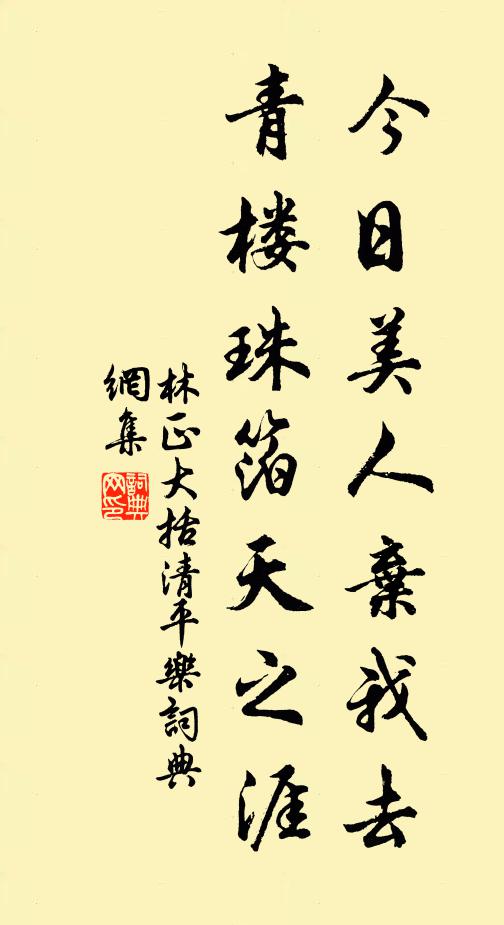 今日美人棄我去
青楼珠箔天之涯
林正大括清平樂詞典
網集
詞典網印